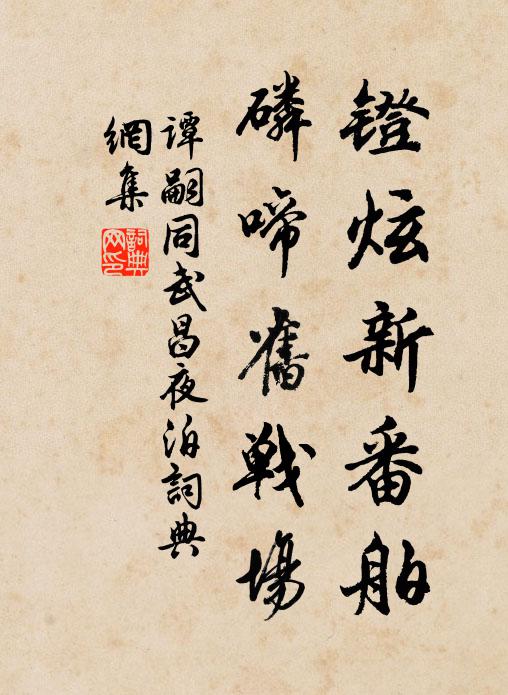 鐙炫新番舶
磷啼舊戰場
谭嗣同武昌夜泊詞典
網集
詞典
网印